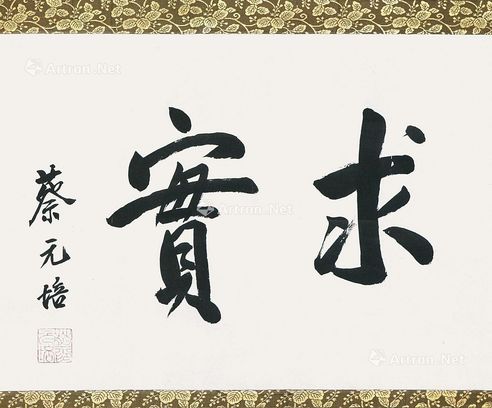 求實
蔡元培
Artron.Net
Artron.Net
Artron.Net